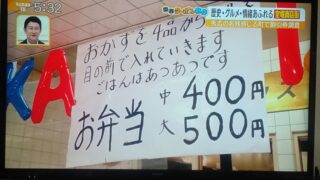 5:32
歴史・グルメ・情緒あふれる
おかずを4品から
目の前で入れていきます
ごはんはあつあつです
お弁当
中 400円
大 500円
KA